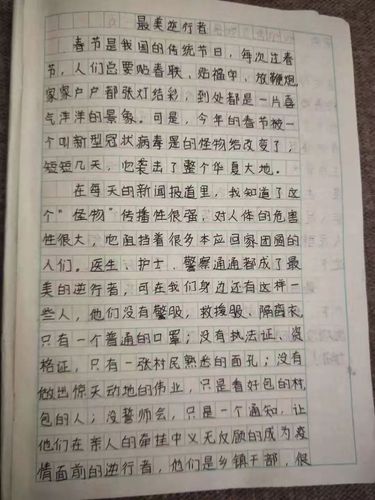 最美逆行者
春节是我国的传统节日，每次过春
节，人们总要贴春联、贴福字、放鞭炮
家家户户都张灯结彩，到处都是一片喜
气洋洋的景象。可是，今年的春节被一
个叫新型冠状病毒是的怪物给改变了，
短短几天，它袭击了整个华夏大地。
在每天的新闻报道里，我知道了这
个“怪物”传播性很强，对人体的危害
性很大，也阻挡着很多本应回家团圆的
人们。医生、护士、警察通通都成了最
美的逆行者，可在我们身边还有这样一
些人，他们没有警服，救援服、隔离衣，
只有一个普通的口罩；没有执法证、资
格证，只有一张村民熟悉的面孔；没有
做出惊天动地的伟业，只是看好包的村
包的人；没誓师会，只是一个通知，让
他们在亲人的牵挂中义无反顾的成为疫
情面前的逆行者，他们是乡镇干部，很